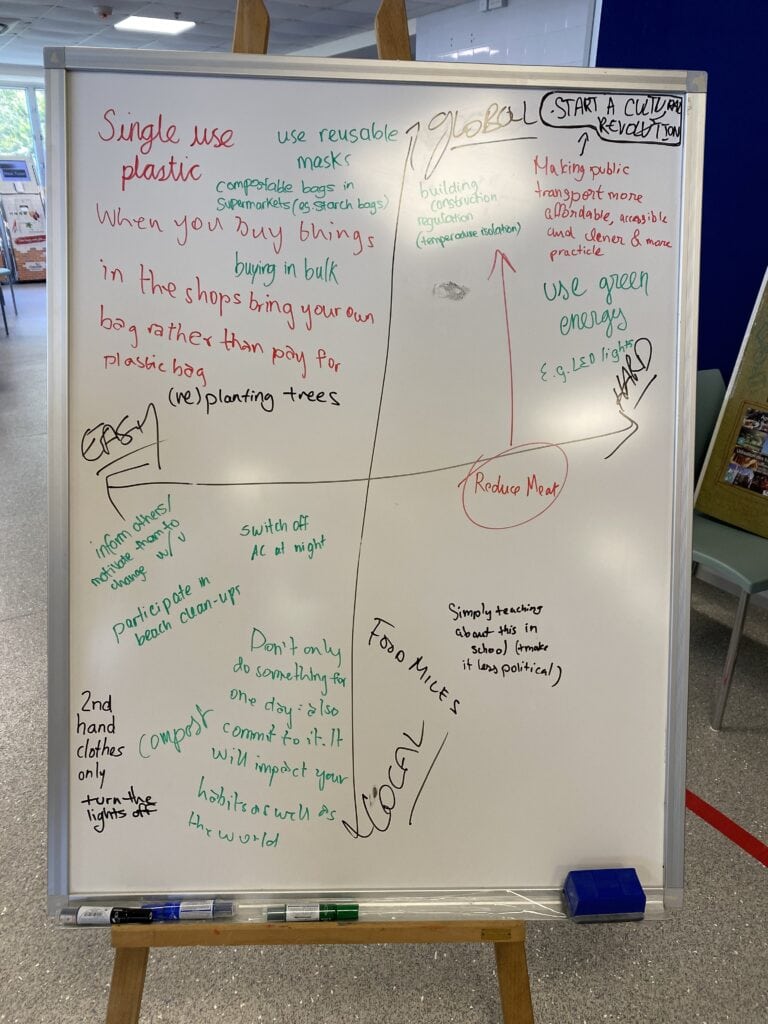 Single use
plastic
use reusable
masks
compostable bags in
supermarkets (eg starch bags)
When you buy things
buying in bulk
in the shops bring your own
bag rather than pay for
plastic bag
(re)planting trees
GLOBAL
START A CULTURAL
REVOLUTION
building
construction
regulation
(temperature isolation)
Making public
transport more
affordable, accessible
and clener & more
practicle
use green
energy
E.g. LED lights
HARD
EASY
Reduce Meat
inform others/
motivate them to
change w/ u
switch off
AC at night
participate in
beach clean-ups
Don't only
do something for
one day: also
commit to it. It
will impact your
habits as well as
the world
compost
2nd
hand
clothes
only
turn the
lights off
FOOD MILES
LOCAL
Simply teaching
about this in
school (+make
it less political)